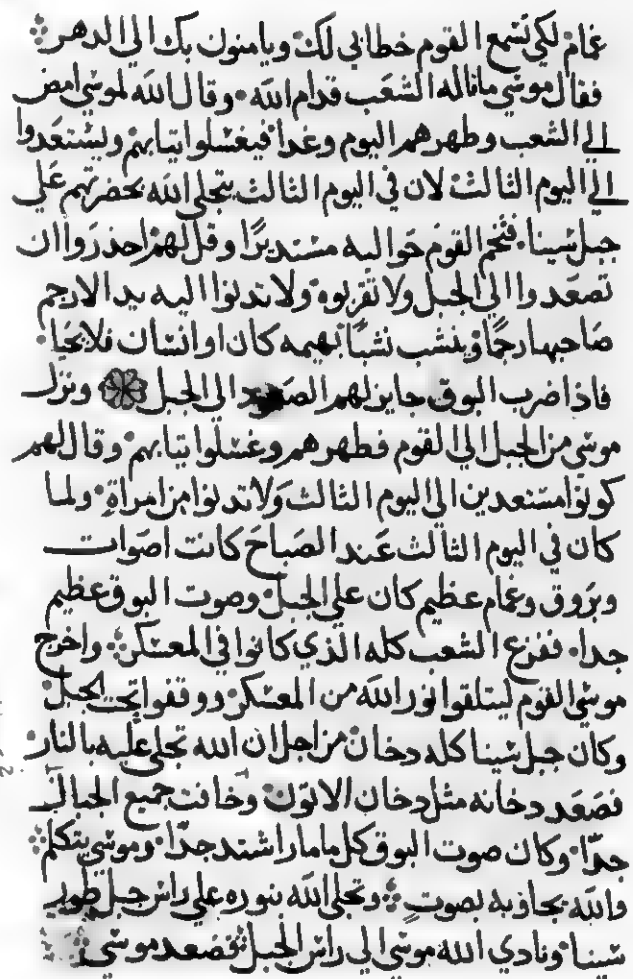 غمام لكي تسمع القوم خطابي لك ويامنون بك الي الدهر
فقال موسي ماناله الشعب قدام الله وقال الله لموسي امض
الي الشعب وطهرهم اليوم وغدا فيغسلوا تيابهم ويستعدوا
الي اليوم الثالث لان في اليوم الثالث يتجلي الله بحضرتهم علي
جبل سينا فتخم القوم حواليه مستديرًا وقل لهم احذروا ان
تصعدوا الي الجبل ولا تقربوه ولا تدنوا اليه يد الا رجم
صاحبها رجمًا وينشب نشبًا بهيمه كان او انسان فلا يحيا
فاذا ضرب البوق جايز لهم الصعود الي الجبل ونزل
موسي من الجبل الي القوم فطهرهم وغسلوا تيابهم وقال لهم
كونوا مستعدين الي اليوم الثالث ولا تدنوا من امراة ولما
كان في اليوم الثالث عند الصباح كانت اصوات
وبروق وغمام عظيم كان علي الجبل وصوت البوق عظيم
جدا ففزع الشعب كله الذي كانوا في المعسكر واخرج
موسي القوم ليتلقوا نور الله من المعسكر ووقفوا تحت الجبل
وكان جبل سينا كله دخان من اجل ان الله تجلي عليه بالنار
فصعد دخانه مثل دخان الاتون وخافت جميع الجبال
جدًا وكان صوت البوق كل ما مار اشتد جدًا وموسي يتكلم
والله يجاوبه بصوت وتجلي الله بنوره علي راس جبل طور
سينا ونادي الله موسي الي راس الجبل فصعد موسي